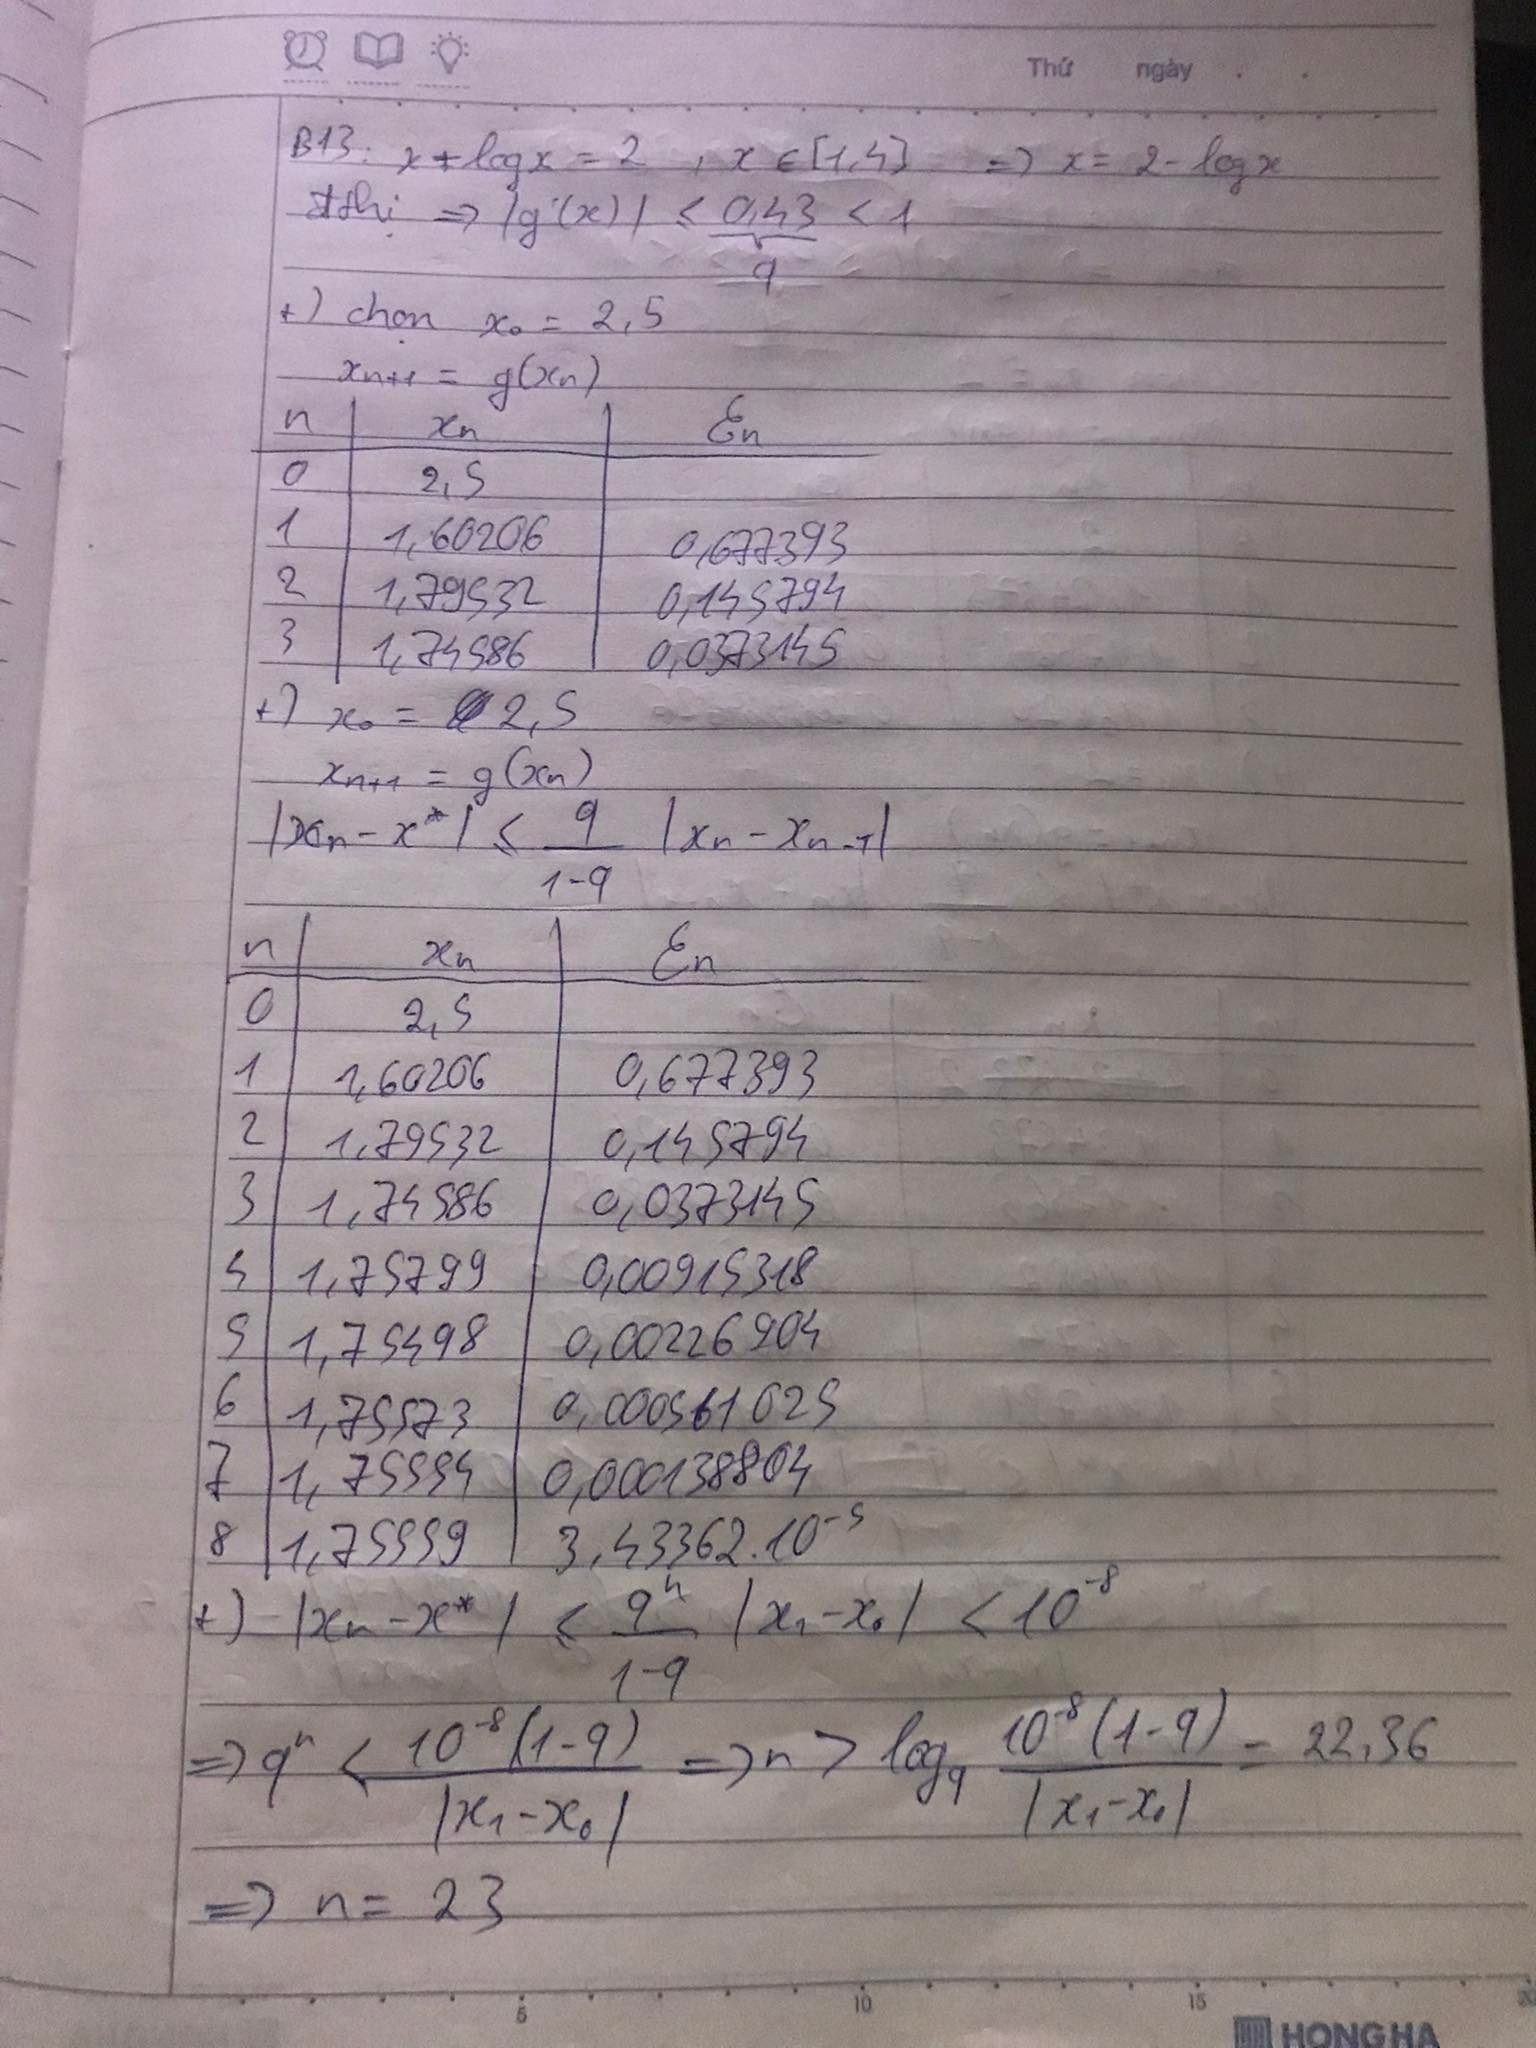 Thứ ngày
B13: x + logx = 2 , x ∈ [1,4] => x = 2 - logx
đthị => |g'(x)| ≤ 0,43 < 1
q
+) chọn x₀ = 2,5
xₙ₊₁ = g(xₙ)
n xₙ Ɛₙ
0 2,5
1 1,60206 0,677393
2 1,79532 0,145794
3 1,74586 0,0373145
+) x₀ = 2,5
xₙ₊₁ = g(xₙ)
|xₙ - x*| ≤ q/(1-q) |xₙ - xₙ₋₁|
n xₙ Ɛₙ
0 2,5
1 1,60206 0,677393
2 1,79532 0,145794
3 1,74586 0,0373145
4 1,75799 0,00915318
5 1,75498 0,00226904
6 1,75573 0,000561025
7 1,75554 0,000138804
8 1,75559 3,43362.10⁻⁵
+) |xₙ - x*| ≤ qⁿ/(1-q) |x₁ - x₀| < 10⁻⁸
=> qⁿ < 10⁻⁸(1-q)/|x₁-x₀| => n > log_q 10⁻⁸(1-q)/|x₁-x₀| = 22,36
=> n = 23
5 10 15 20
HONG HA